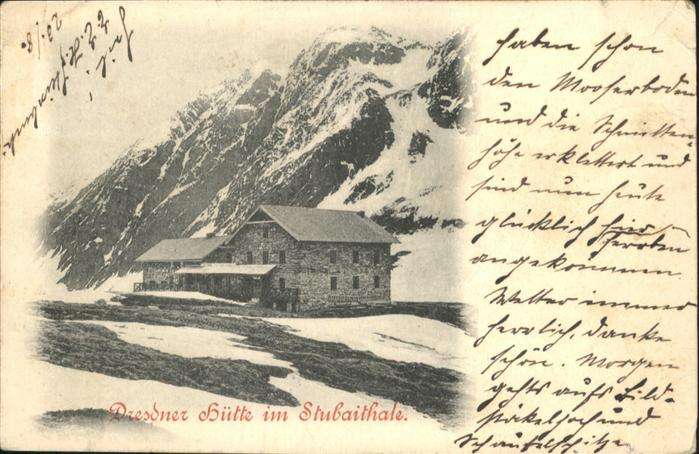 20/8.
haben schon
den Mooserboden
und die Schmitten-
höhe erklettert und
sind nun heute
glücklich hier
heroben
angekommen.
Wetter immer
herrlich, danke
schön. Morgen
gehts aufs Bild-
stökeljoch und
Schaufelspitze
Dresdner Hütte im Stubaithale.